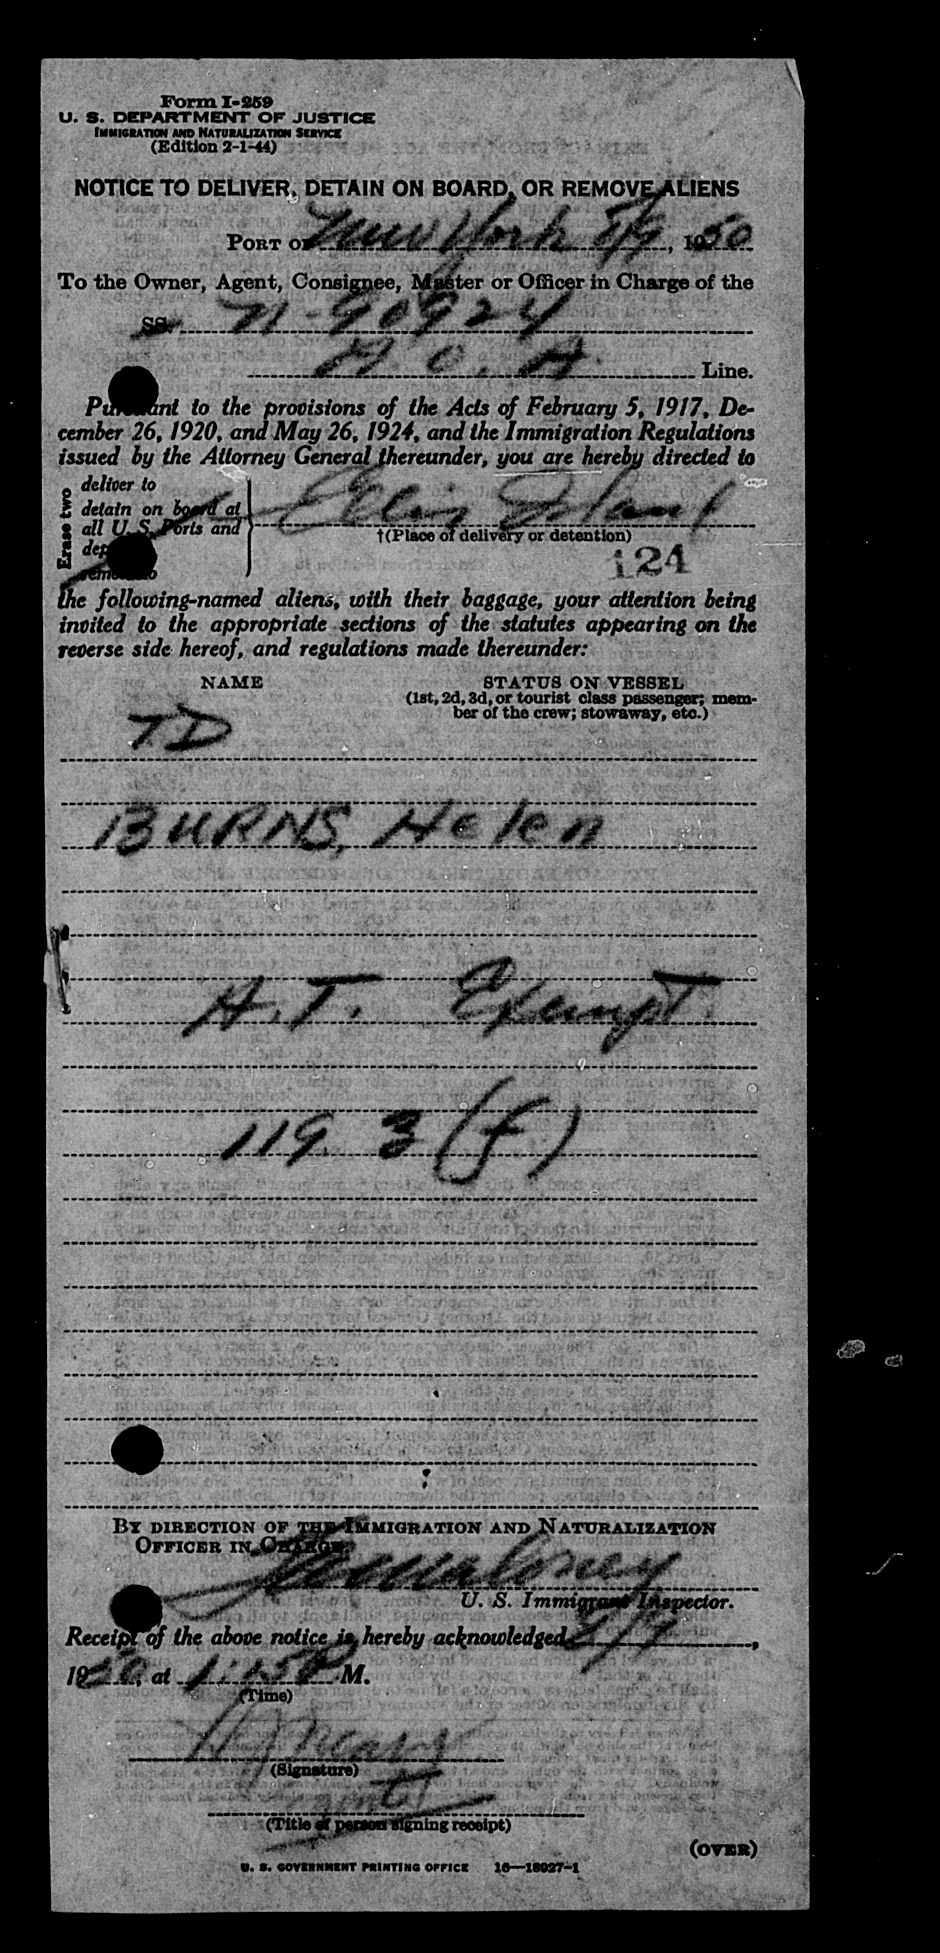 Form I-259
U. S. DEPARTMENT OF JUSTICE
IMMIGRATION AND NATURALIZATION SERVICE
(Edition 2-1-44)
NOTICE TO DELIVER, DETAIN ON BOARD, OR REMOVE ALIENS
PORT OF New York 5/9, 1950
To the Owner, Agent, Consignee, Master or Officer in Charge of the
SS. N-90924
A. O. A. Line.
Pursuant to the provisions of the Acts of February 5, 1917, De-
cember 26, 1920, and May 26, 1924, and the Immigration Regulations
issued by the Attorney General thereunder, you are hereby directed to
Erase two
deliver to
detain on board at
all U. S. Ports and
Ellis Island
†(Place of delivery or detention)
124
the following-named aliens, with their baggage, your attention being
invited to the appropriate sections of the statutes appearing on the
reverse side hereof, and regulations made thereunder:
NAME STATUS ON VESSEL
(1st, 2d, 3d, or tourist class passenger; mem-
ber of the crew; stowaway, etc.)
T.D
BURNS, Helen
H.T. Exempt
119 3 (f)
BY DIRECTION OF THE IMMIGRATION AND NATURALIZATION
OFFICER IN CHARGE:
U. S. Immigrant Inspector.
Receipt of the above notice is hereby acknowledged,
1950, at P M.
(Time)
(Signature)
(Title of person signing receipt)
(OVER)
U. S. GOVERNMENT PRINTING OFFICE 16—18027-1